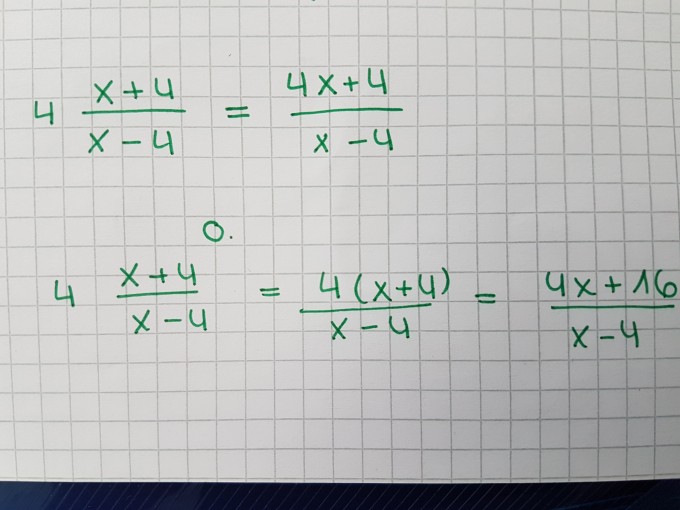 4 x+4/x-4 = 4x+4/x-4
o.
4 x+4/x-4 = 4(x+4)/x-4 = 4x+16/x-4